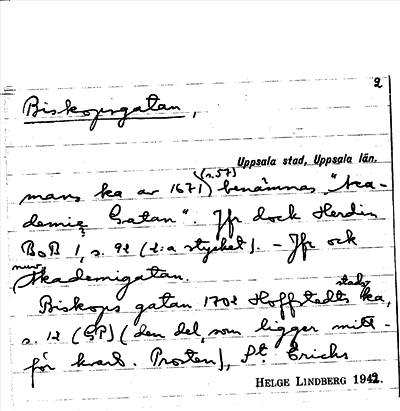 2
Biskopsgatan,
Uppsala stad, Uppsala län.
mans ka av 1671 (s. 57) benämnas "Aka-
demię Gatan". Jfr dock Herdin
BoB 1, s. 92 (2:a stycket). - Jfr ock
nuv. Akademigatan.
Biskops gatan 1702 Hoffstedts stads ka,
s. 12 (GP) (den del, som ligger mitt-
för kvart. Prosten), St. Erichs
HELGE LINDBERG 1942.